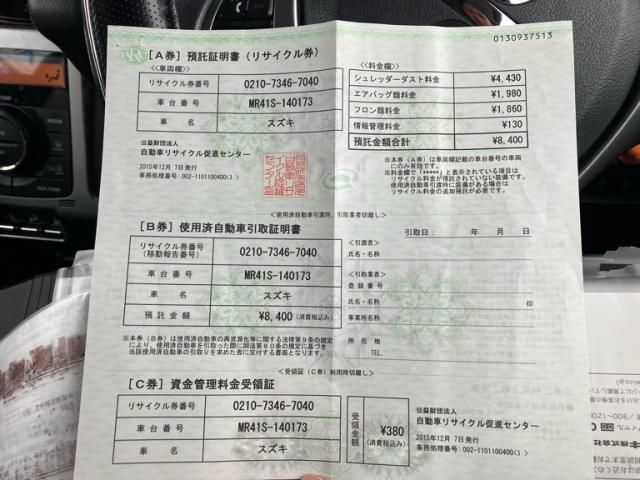 0130937513
[A券] 預託証明書 (リサイクル券)
<<車両欄>>
リサイクル券番号 0210-7346-7040
車台番号 MR41S-140173
車 名 スズキ
公益財団法人
自動車リサイクル促進センター
2015年12月 7日発行
事務処理番号:002-1101100400<1>
<<料金欄>>
シュレッダーダスト料金 ¥4,430
エアバッグ類料金 ¥1,980
フロン類料金 ¥1,860
情報管理料金 ¥130
預託金額合計 ¥8,400
※本券(A券)は車両欄記載の車台番号の車両にのみ有効です。
※料金欄で「*****」と表示されている項目は
リサイクル料金が預託されていない装備です。
使用済自動車引渡時に装備がある場合は
リサイクル料金の追加預託が必要です。
<使用済自動車引渡時、引取業者切離し>
[B券] 使用済自動車引取証明書
リサイクル券番号
(移動報告番号) 0210-7346-7040
車台番号 MR41S-140173
車 名 スズキ
預託金額 ¥8,400 (消費税込)
※本券(B券)は使用済自動車の再資源化等に関する法律第9条の規定
により、使用済自動車を引取った際に同法第80条の規定に基づき
当該使用済自動車の引取りを求めた者に交付する書面となります。
引取日: 年 月 日
<引渡者>
氏名・名称
<引取業者>
登録番号
氏名・名称 印
事業所名称
所在地
TEL
<受領証(C券)利用時切離し>
[C券] 資金管理料金受領証
リサイクル券番号 0210-7346-7040
車台番号 MR41S-140173
車 名 スズキ
受領金額 ¥380 (消費税込)
公益財団法人
自動車リサイクル促進センター
2015年12月 7日発行
事務処理番号:002-1101100400<1>